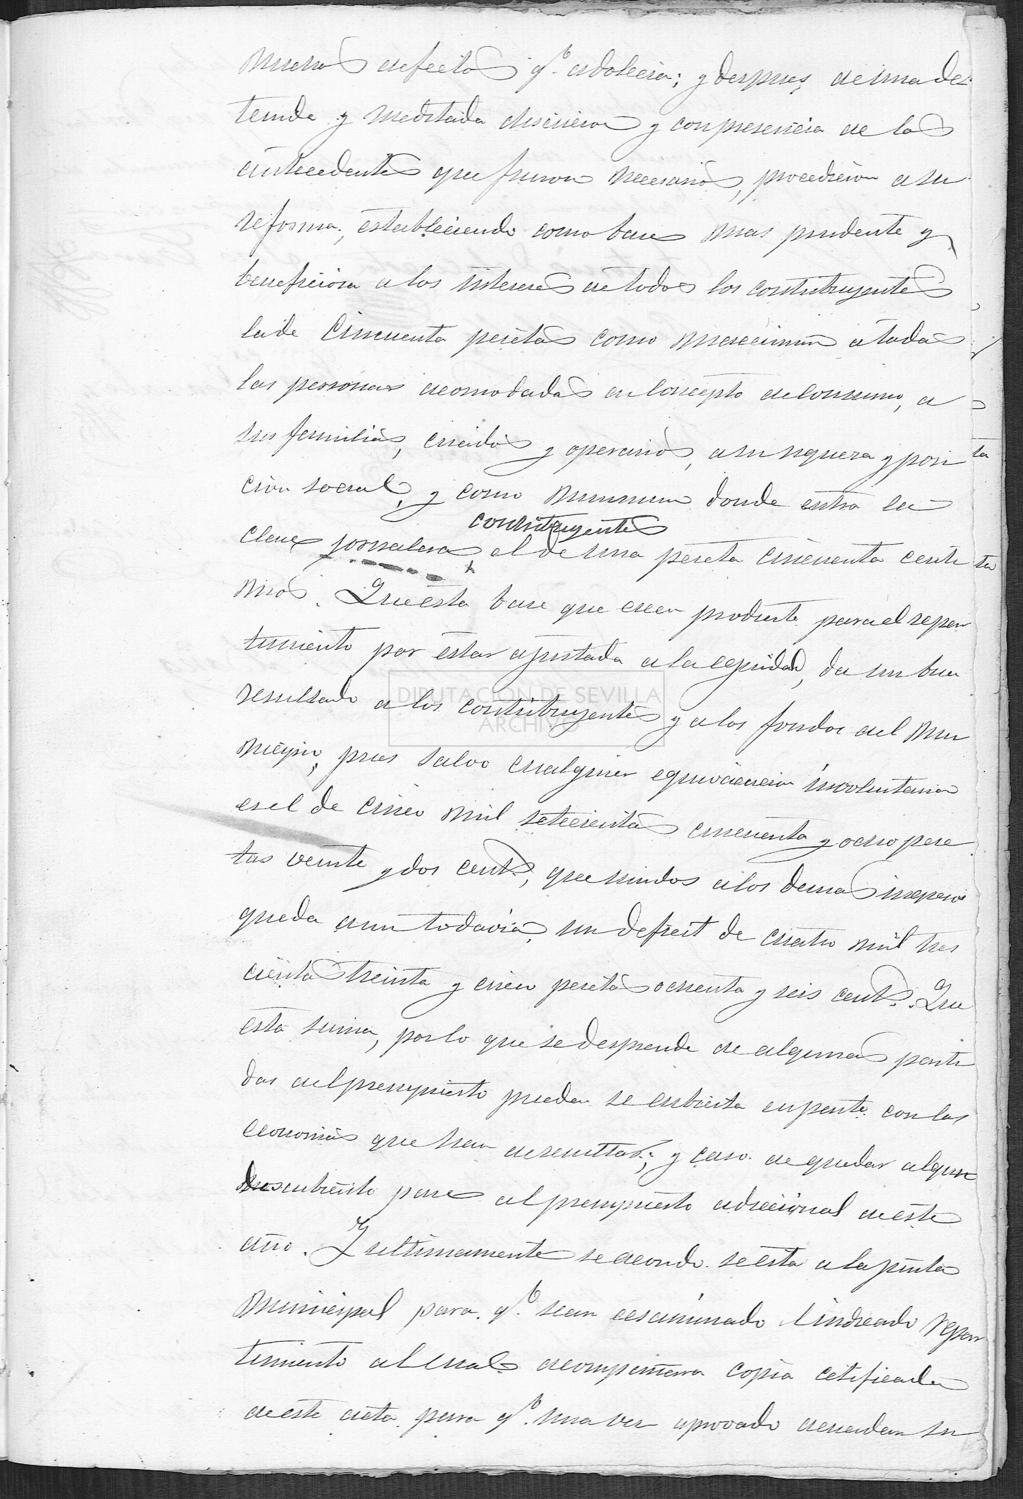 muchos defectos q.e adolecia; y despues de una de-
tenida y meditada discucion y con presencia de los
antecedentes que fueron necesarios, procedieron a su
reforma; estableciendo como bases mas prudente y
beneficiosa a los intereses de todos los contribuyentes
la de Cincuenta pesetas como maccimun a todas
las personas acomodadas en Concepto de Consumo, de
sus familias, criados y operarios, a su riquera y posi
cion social, y como minimun donde entra la
contribuyentes
clase jornalera el de una peseta Cincuenta centi
mos. Que esta base que creen prudente para el repar
timiento por estar ajustada a la equidad, da un buen
resultado a los contribuyentes y a los fondos del Mu
nicipio, pues salvo cualquier equivocacion involuntaria
es el de cinco mil setecientas cincuenta y ocho pese
tas veinte y dos cent.s, que unidos a los demas ingresos
queda aun todavia, un defecit de cuatro mil tres
cientas treinta y cinco pesetas ochenta y seis cent.s. Que
esta suma, por lo que se desprende de algunas parti
das del presupuesto pueden se cubierta en parte con las
economias que han de resultar; y caso de quedar algun
descubierto pase al presupuesto adiccional de este
año. Y ultimamente se acordo se esta a la junta
Municipal para q.e sean ecsaminado lindicado repar
timiento al cual acompañara copia cetificada
de este acta para q.e una ves aprovado acuerdan su
DIPUTACION DE SEVILLA
ARCHIVO